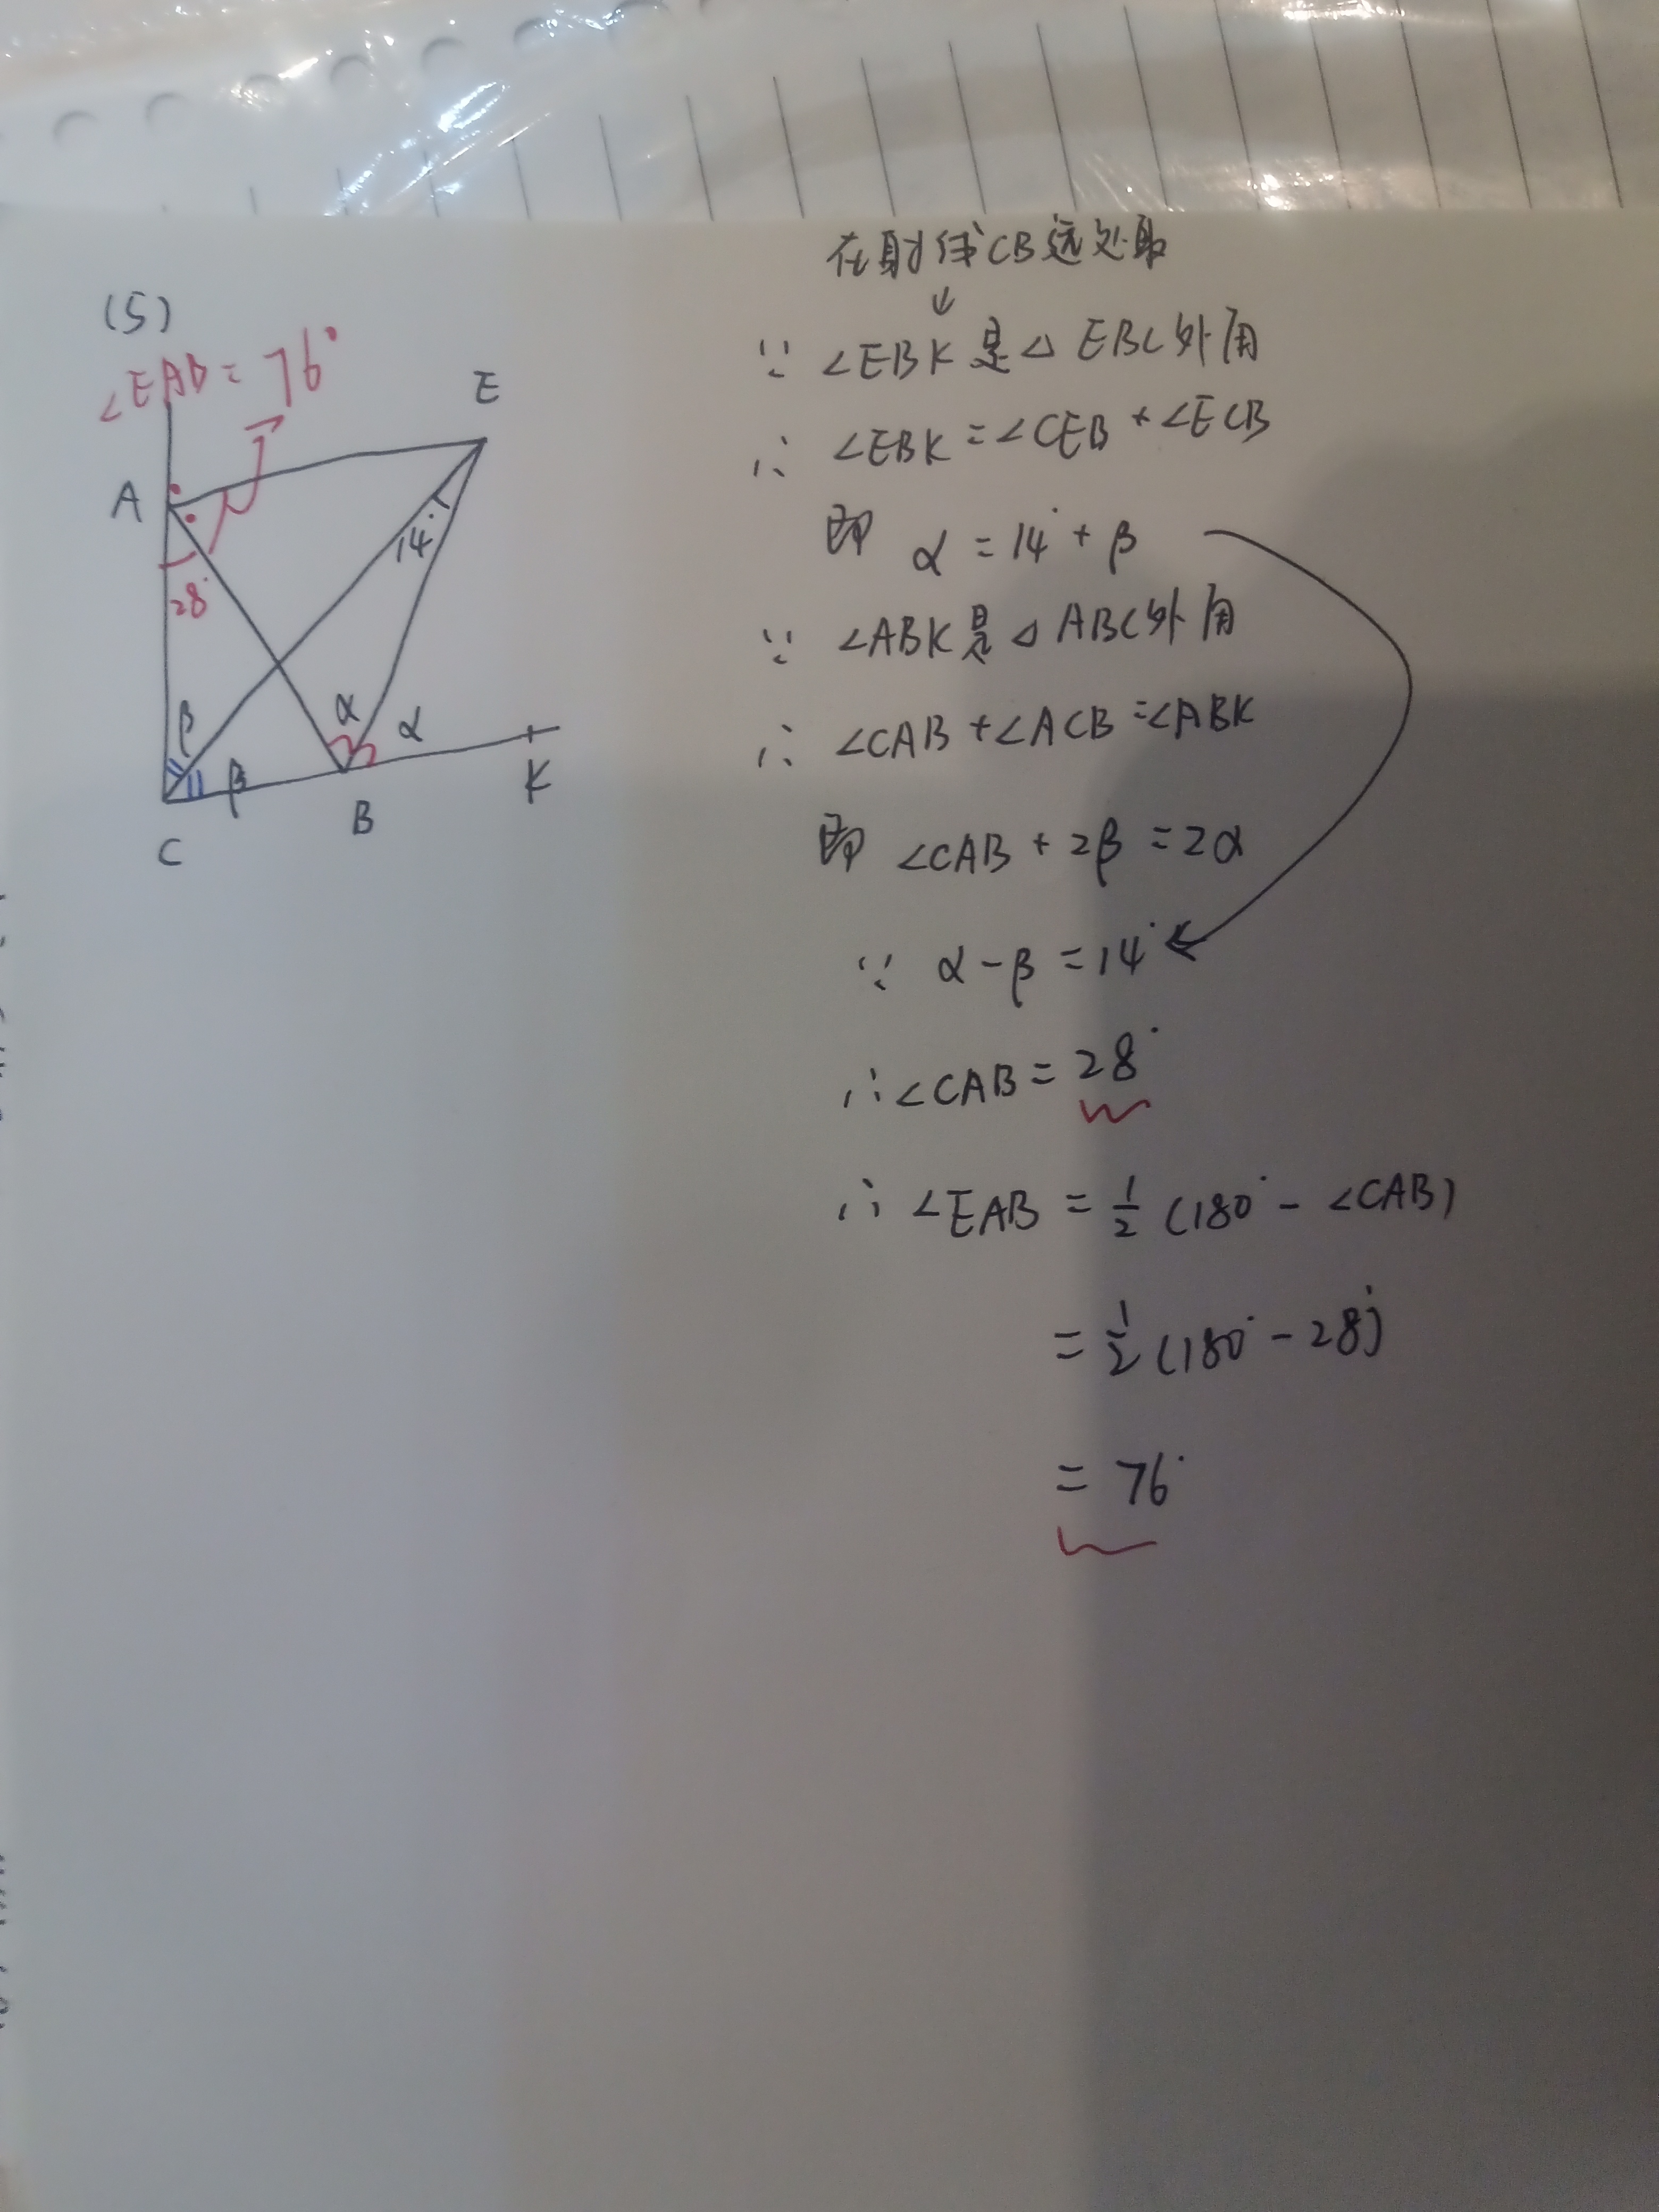 (5)
∠EAB = 76°
E
A
14°
28°
β
α
α
β
K
B
C
在射线CB远处取
↓
∵ ∠EBK是△EBC外角
∴ ∠EBK = ∠CEB + ∠ECB
即 α = 14° + β
∵ ∠ABK是△ABC外角
∴ ∠CAB + ∠ACB = ∠ABK
即 ∠CAB + 2β = 2α
∵ α - β = 14°
∴ ∠CAB = 28°
∴ ∠EAB = 1/2 (180° - ∠CAB)
= 1/2 (180° - 28°)
= 76°